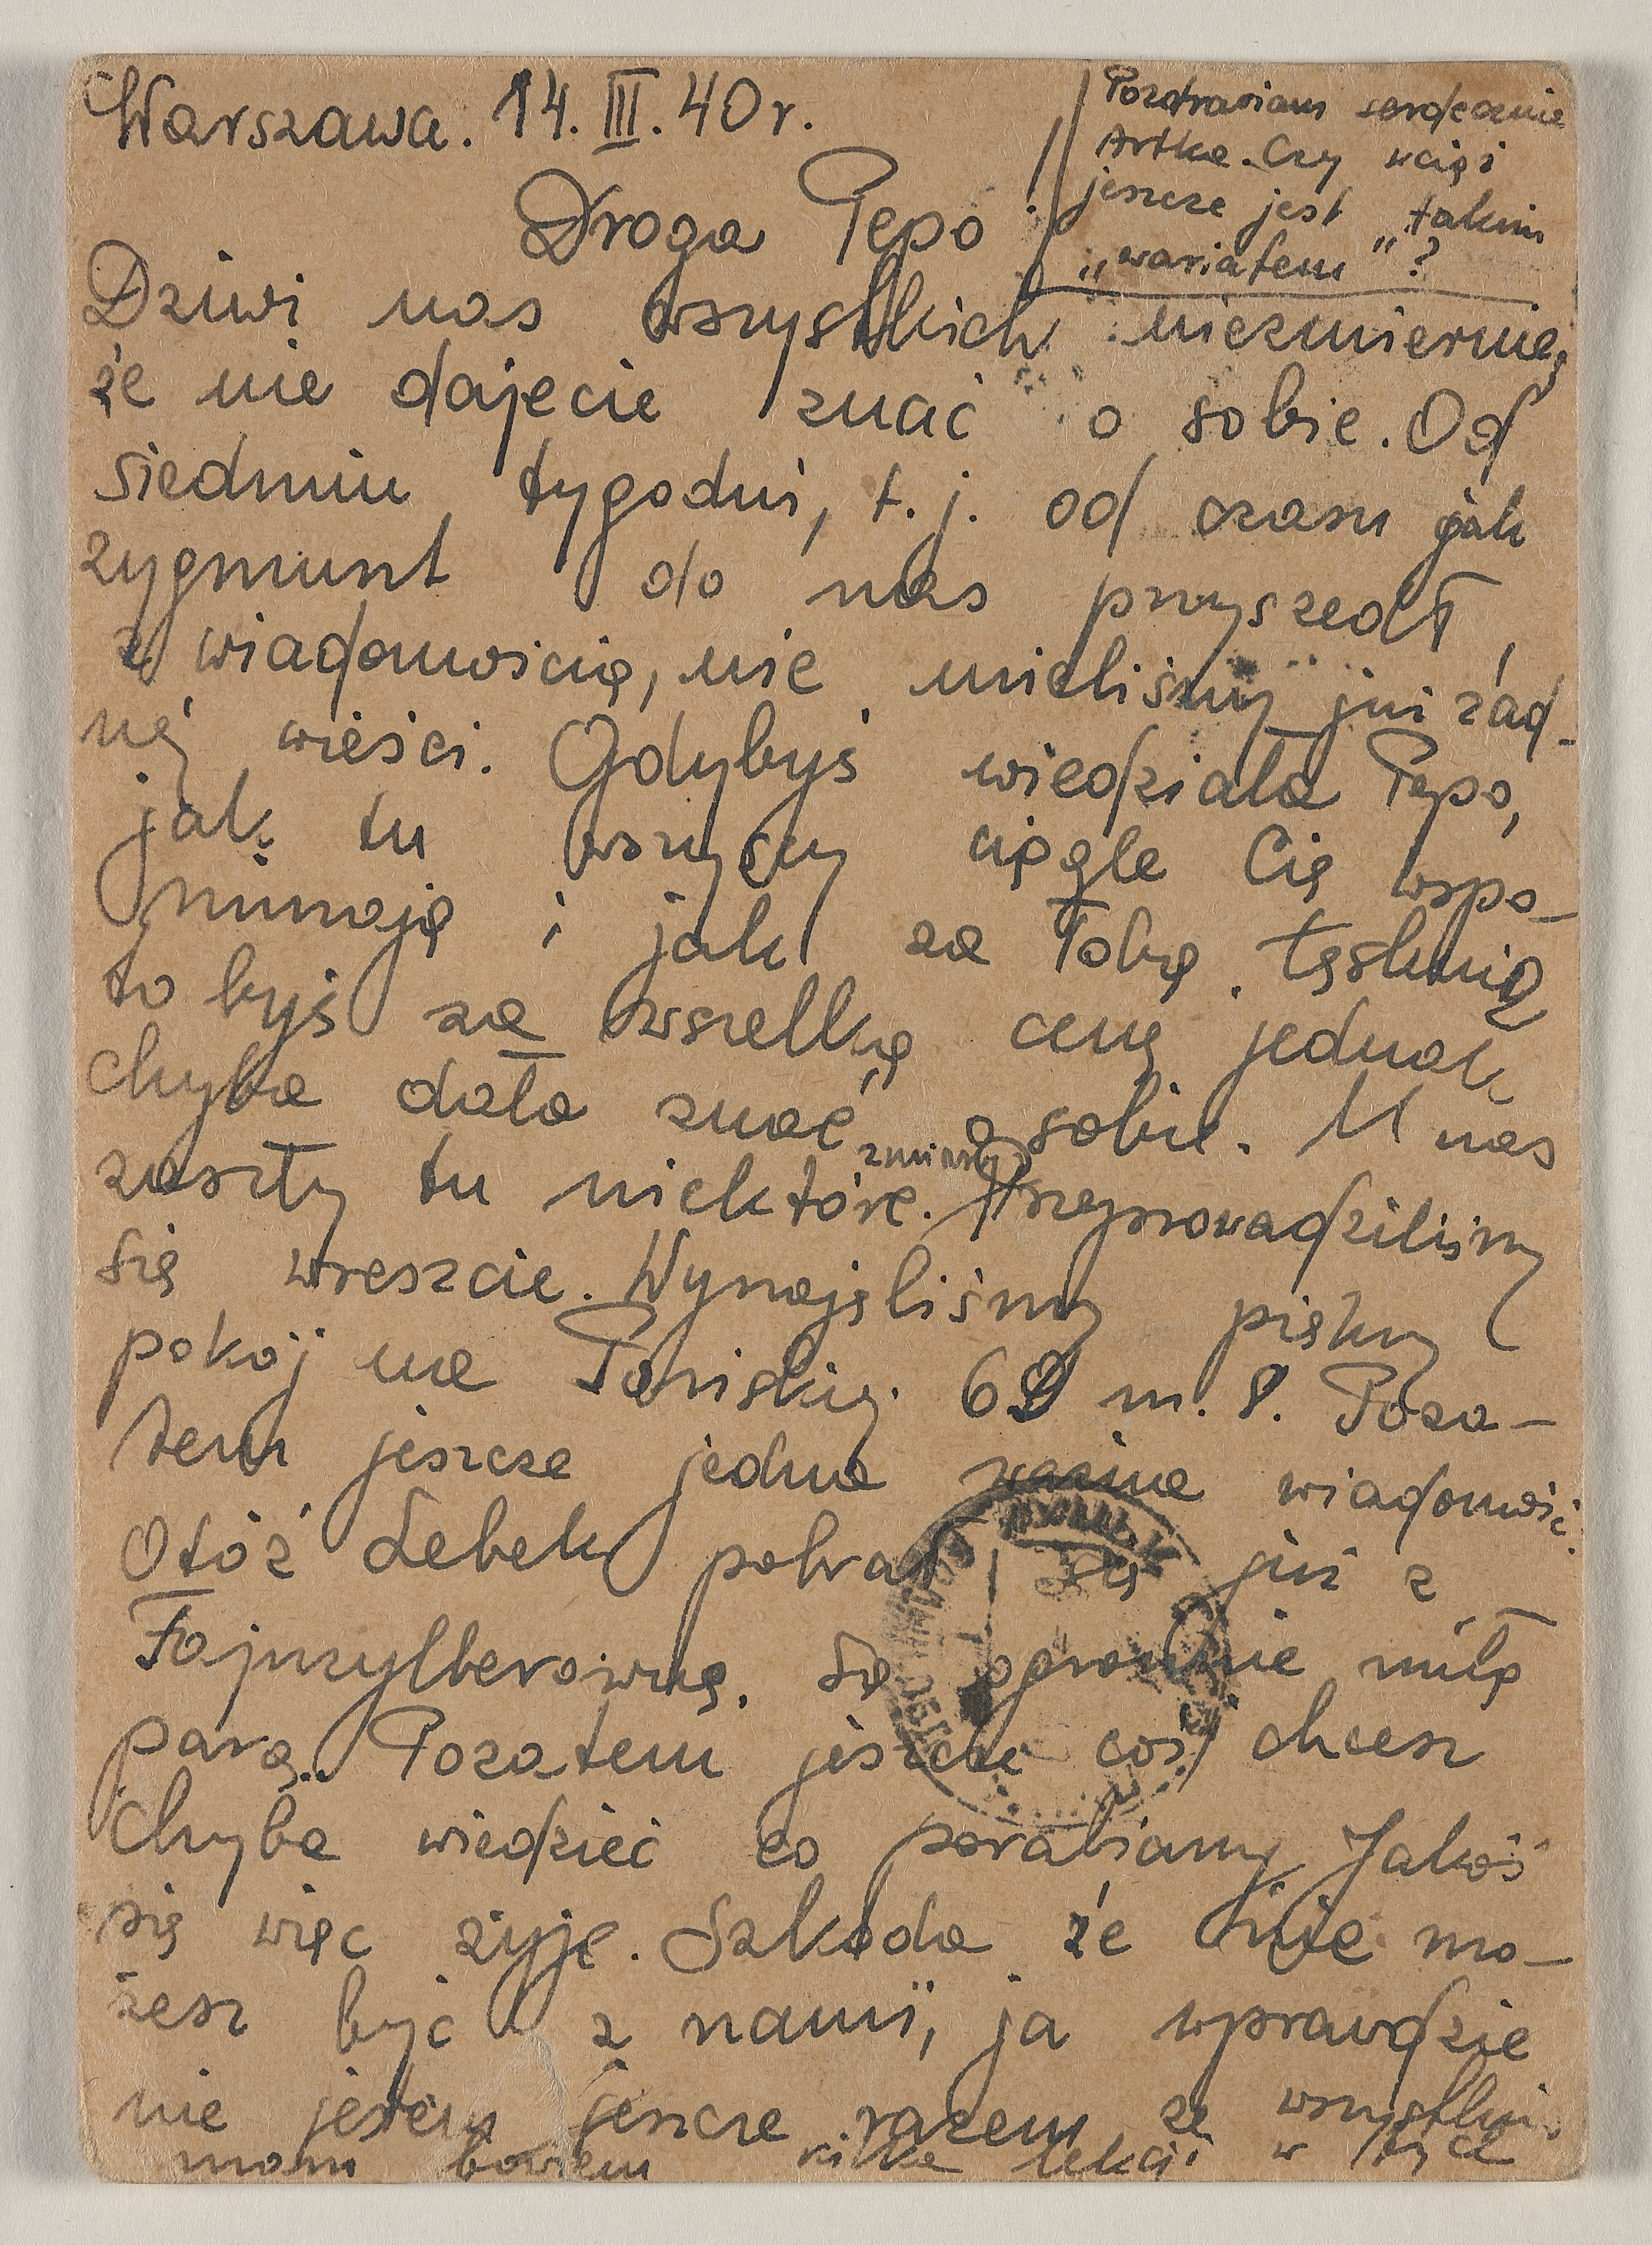 Warszawa. 14. III. 40 r.
Pozdrawiam serdecznie
Artka. Czy wciąż
jeszcze jest „takim
„wariatem"?
Droga Pepo!
Dziwi nas wszystkich niezmiernie,
że nie dajecie znać o sobie. Od
siedmiu tygodni, t.j. od czasu jak
Zygmunt do nas przyszedł
z wiadomością, nie mieliśmy już żad-
nej wieści. Gdybyś wiedziała Pepo,
jak tu wszyscy ciągle Cię wspo-
minają i jak za Tobą tęsknią
to byś za wszelką cenę jednak
chyba dała znać o sobie. U nas
zaszły tu niektóre zmiany. Przeprowadziliśmy
się wreszcie. Wynajęliśmy piękny
pokój na Pańskiej 62 m. 8. Poza-
tem jeszcze jedna ważna wiadomość.
Otóż Lebek pobrał się już z
Fajnzylberówną. Są ogromnie miłą
parą. Pozatem jeszcze coś chcesz
chyba wiedzieć co porabiamy. Jakoś
się więc żyje. Szkoda że nie mo-
żesz być z nami, ja wprawdzie
nie jestem jeszcze razem ze wszystkimi
mam bowiem kilka lekcji w